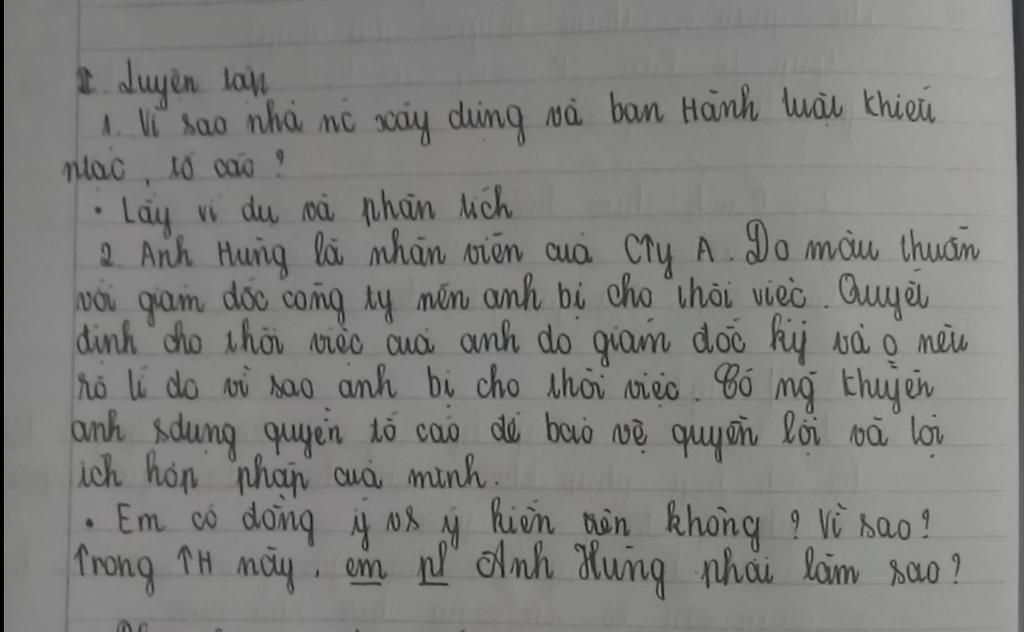 I. Luyện tập
1. Vì sao nhà nc xây dựng và ban Hành luật khiếu
nại, tố cáo?
• Lấy ví dụ và phân tích
2. Anh Hưng là nhân viên của CTy A. Do mâu thuẫn
với giám đốc công ty nên anh bị cho thôi việc. Quyết
định cho thôi việc của anh do giám đốc ký và o nêu
rõ lí do vì sao anh bị cho thôi việc. Có ng khuyên
anh sdụng quyền tố cáo để bảo vệ quyền lợi và lợi
ích hợp pháp của mình.
• Em có đồng ý vs ý kiến trên không? Vì sao?
Trong TH này, em Anh Hưng phải làm sao?